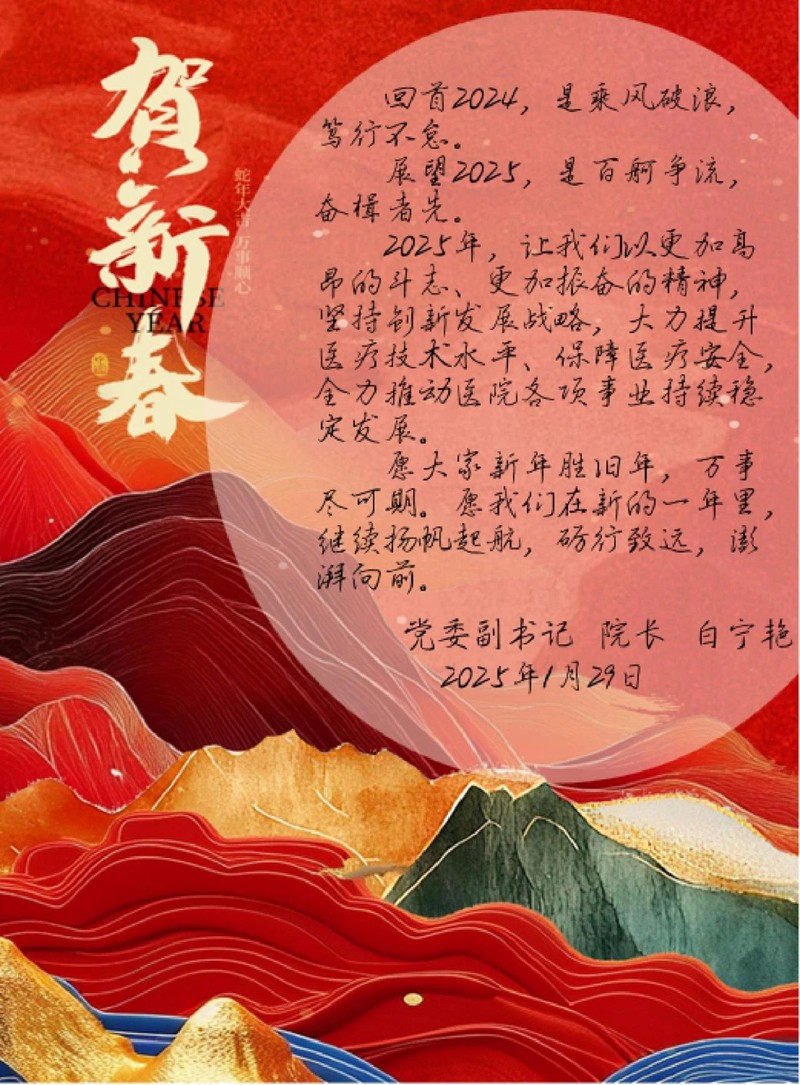 贺新春
蛇年大吉 万事顺心
CHINESE
YEAR
回首2024，是乘风破浪，
笃行不怠。
展望2025，是百舸争流，
奋楫者先。
2025年，让我们以更加高
昂的斗志、更加振奋的精神，
坚持创新发展战略，大力提升
医疗技术水平、保障医疗安全，
全力推动医院各项事业持续稳
定发展。
愿大家新年胜旧年，万事
尽可期。愿我们在新的一年里，
继续扬帆起航，砺行致远，澎
湃向前。
党委副书记 院长 白宁艳
2025年1月29日